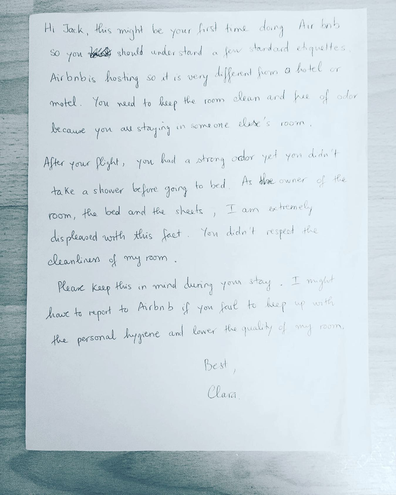 Hi Jack, this might be your first time doing Air bnb
so you should understand a few standard etiquettes
Airbnb is hosting so it is very different from a hotel or
motel. You need to keep the room clean and free of odor
because you are staying in someone else's room.
After your flight, you had a strong odor yet you didn't
take a shower before going to bed. As the owner of the
room, the bed and the sheets, I am extremely
displeased with this fact. You didn't respect the
cleanliness of my room.
Please keep this in mind during your stay. I might
have to report to Airbnb if you fail to keep up with
the personal hygiene and lower the quality of my room.
Best,
Clara